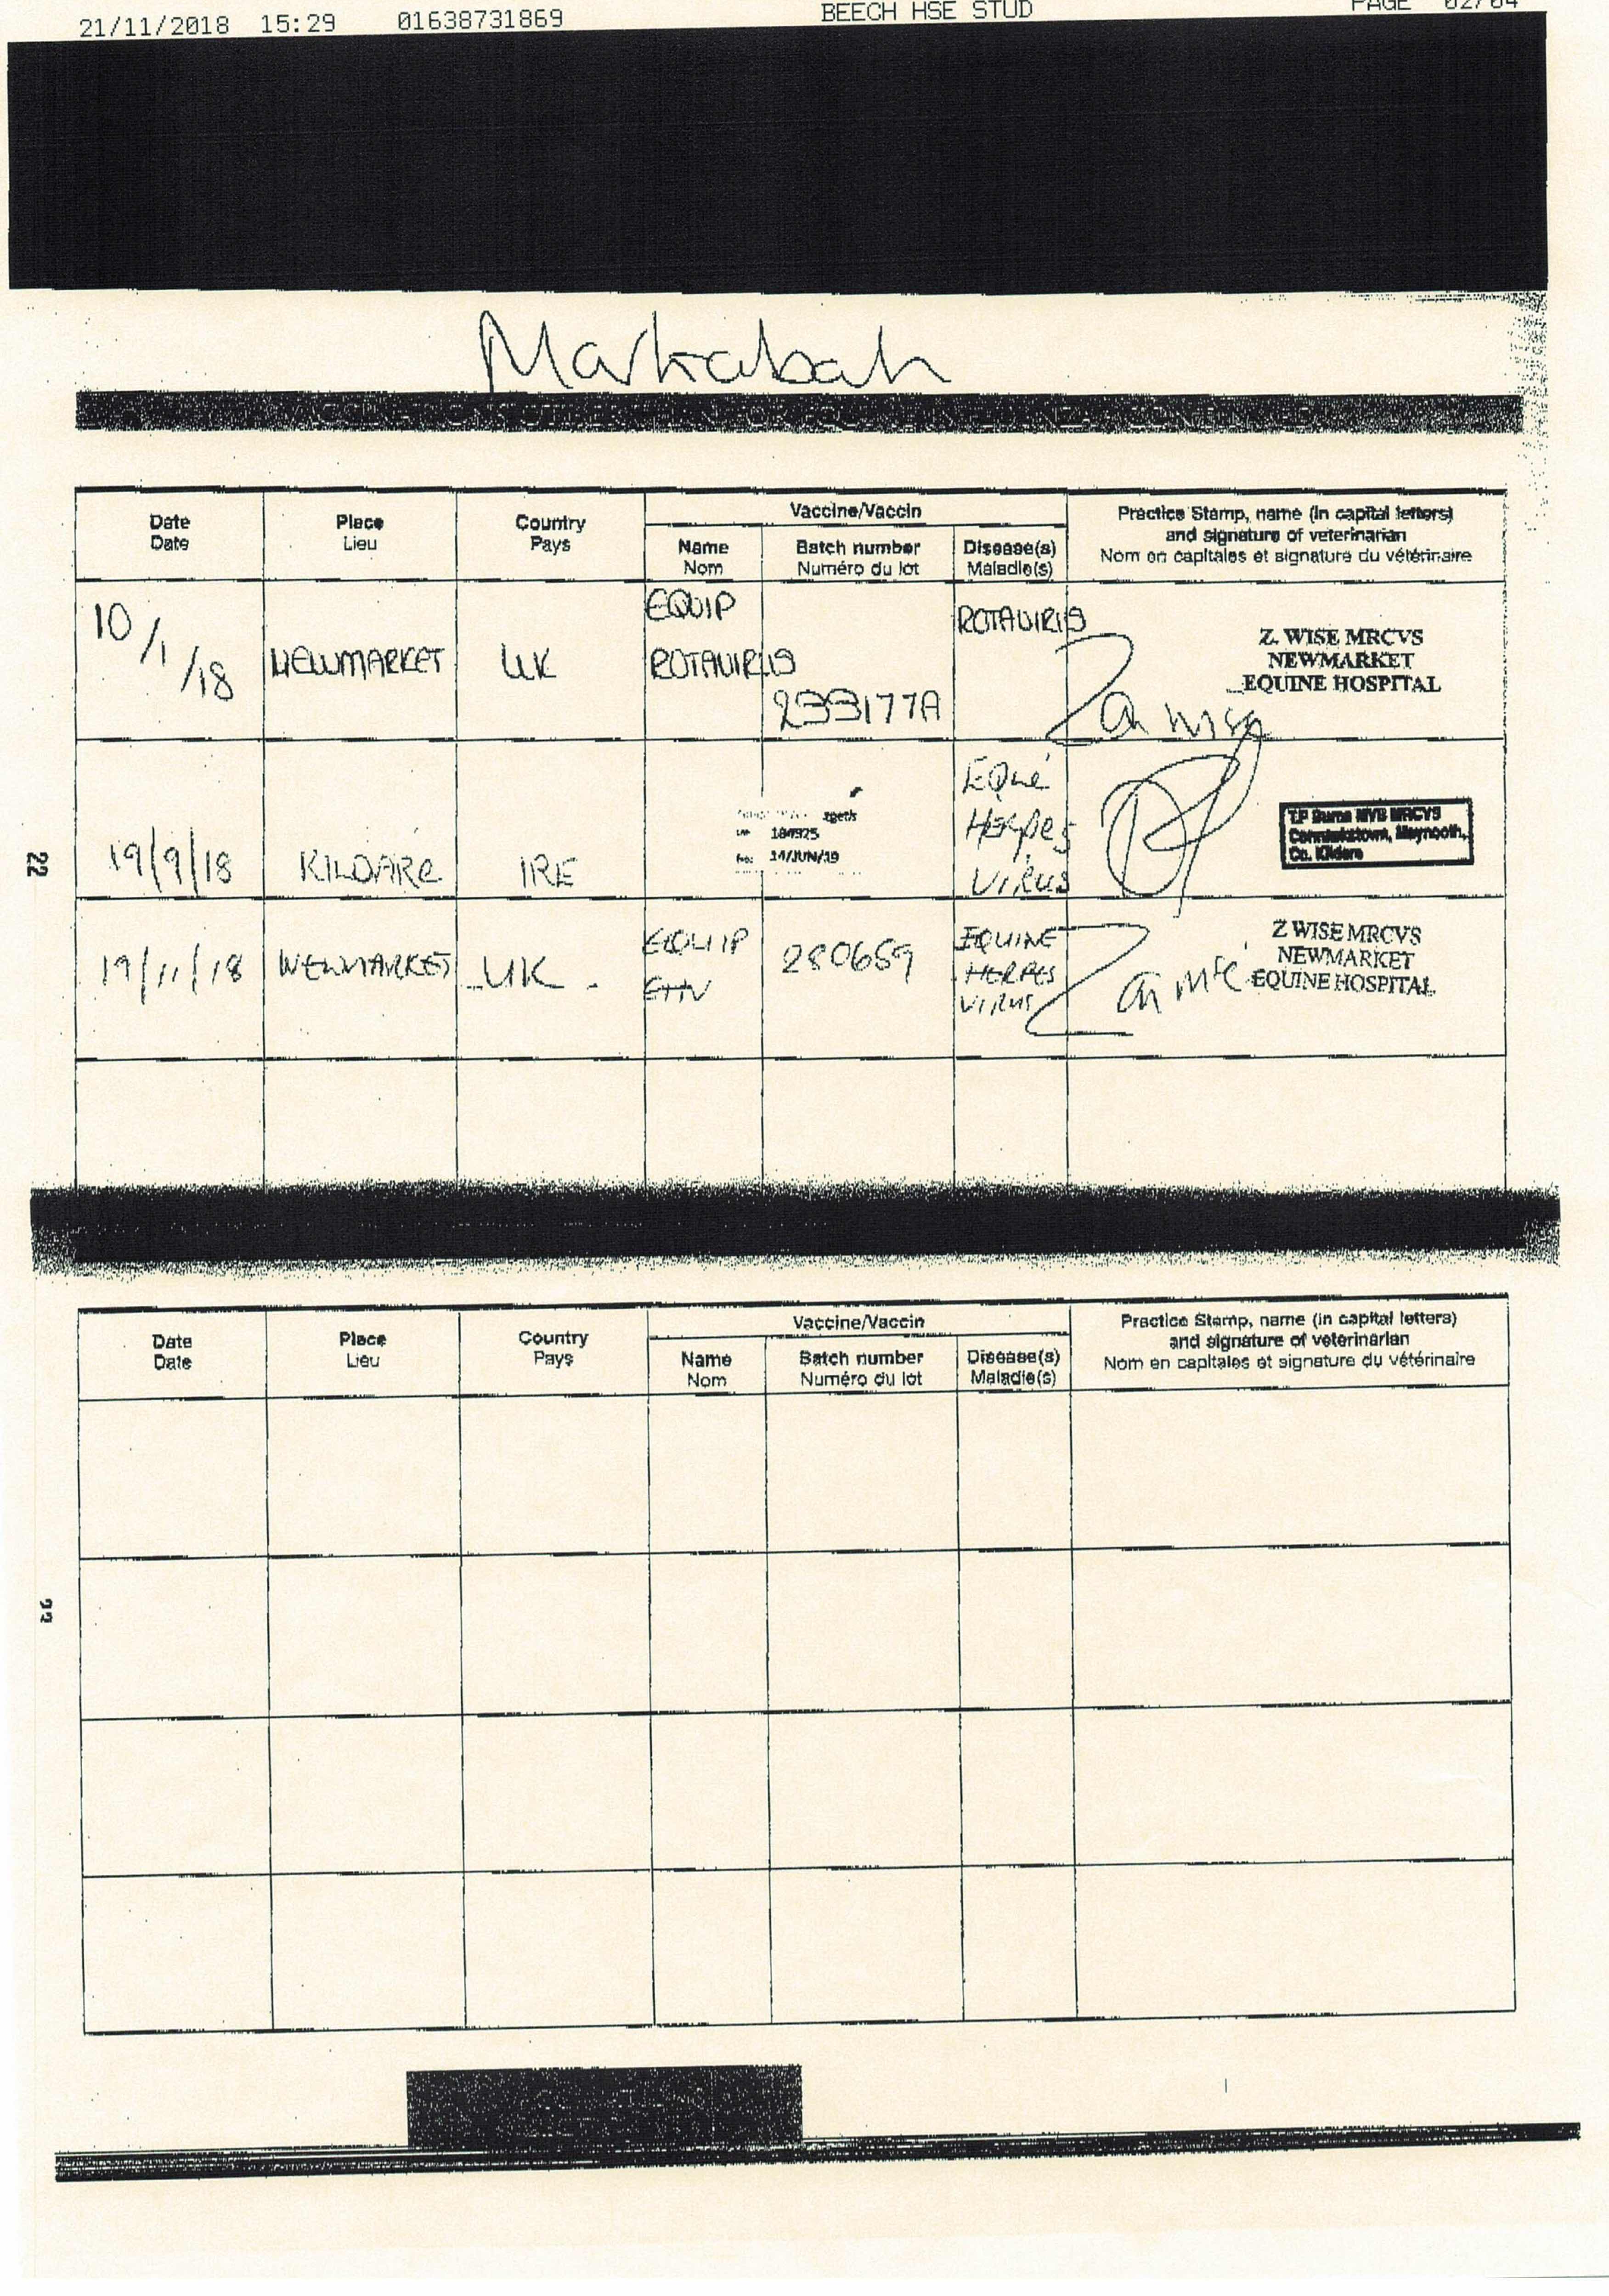 21/11/2018 15:29 01638731869 BEECH HSE STUD PAGE 02/04
Markabah
Date
Date
Place
Lieu
Country
Pays
Vaccine/Vaccin
Name
Nom
Batch number
Numéro du lot
Disease(s)
Maladie(s)
Practice Stamp, name (in capital letters)
and signature of veterinarian
Nom en capitales et signature du vétérinaire
10/1/18 NEWMARKET UK
EQUIP
ROTAVIRUS
233177A
ROTAVIRUS
Z. WISE MRCVS
NEWMARKET
EQUINE HOSPITAL
19/9/18 KILDARE IRE
zoetis
184925
14/JUN/19
EQUI
HERPES
VIRUS
T.P Burns MVB MRCVS
Maynooth,
Co. Kildare
22
19/11/18 NEWMARKET UK
EQUIP
EHV
280659
EQUINE
HERPES
VIRUS
Z WISE MRCVS
NEWMARKET
EQUINE HOSPITAL
Date
Date
Place
Lieu
Country
Pays
Vaccine/Vaccin
Name
Nom
Batch number
Numéro du lot
Disease(s)
Maladie(s)
Practice Stamp, name (in capital letters)
and signature of veterinarian
Nom en capitales et signature du vétérinaire